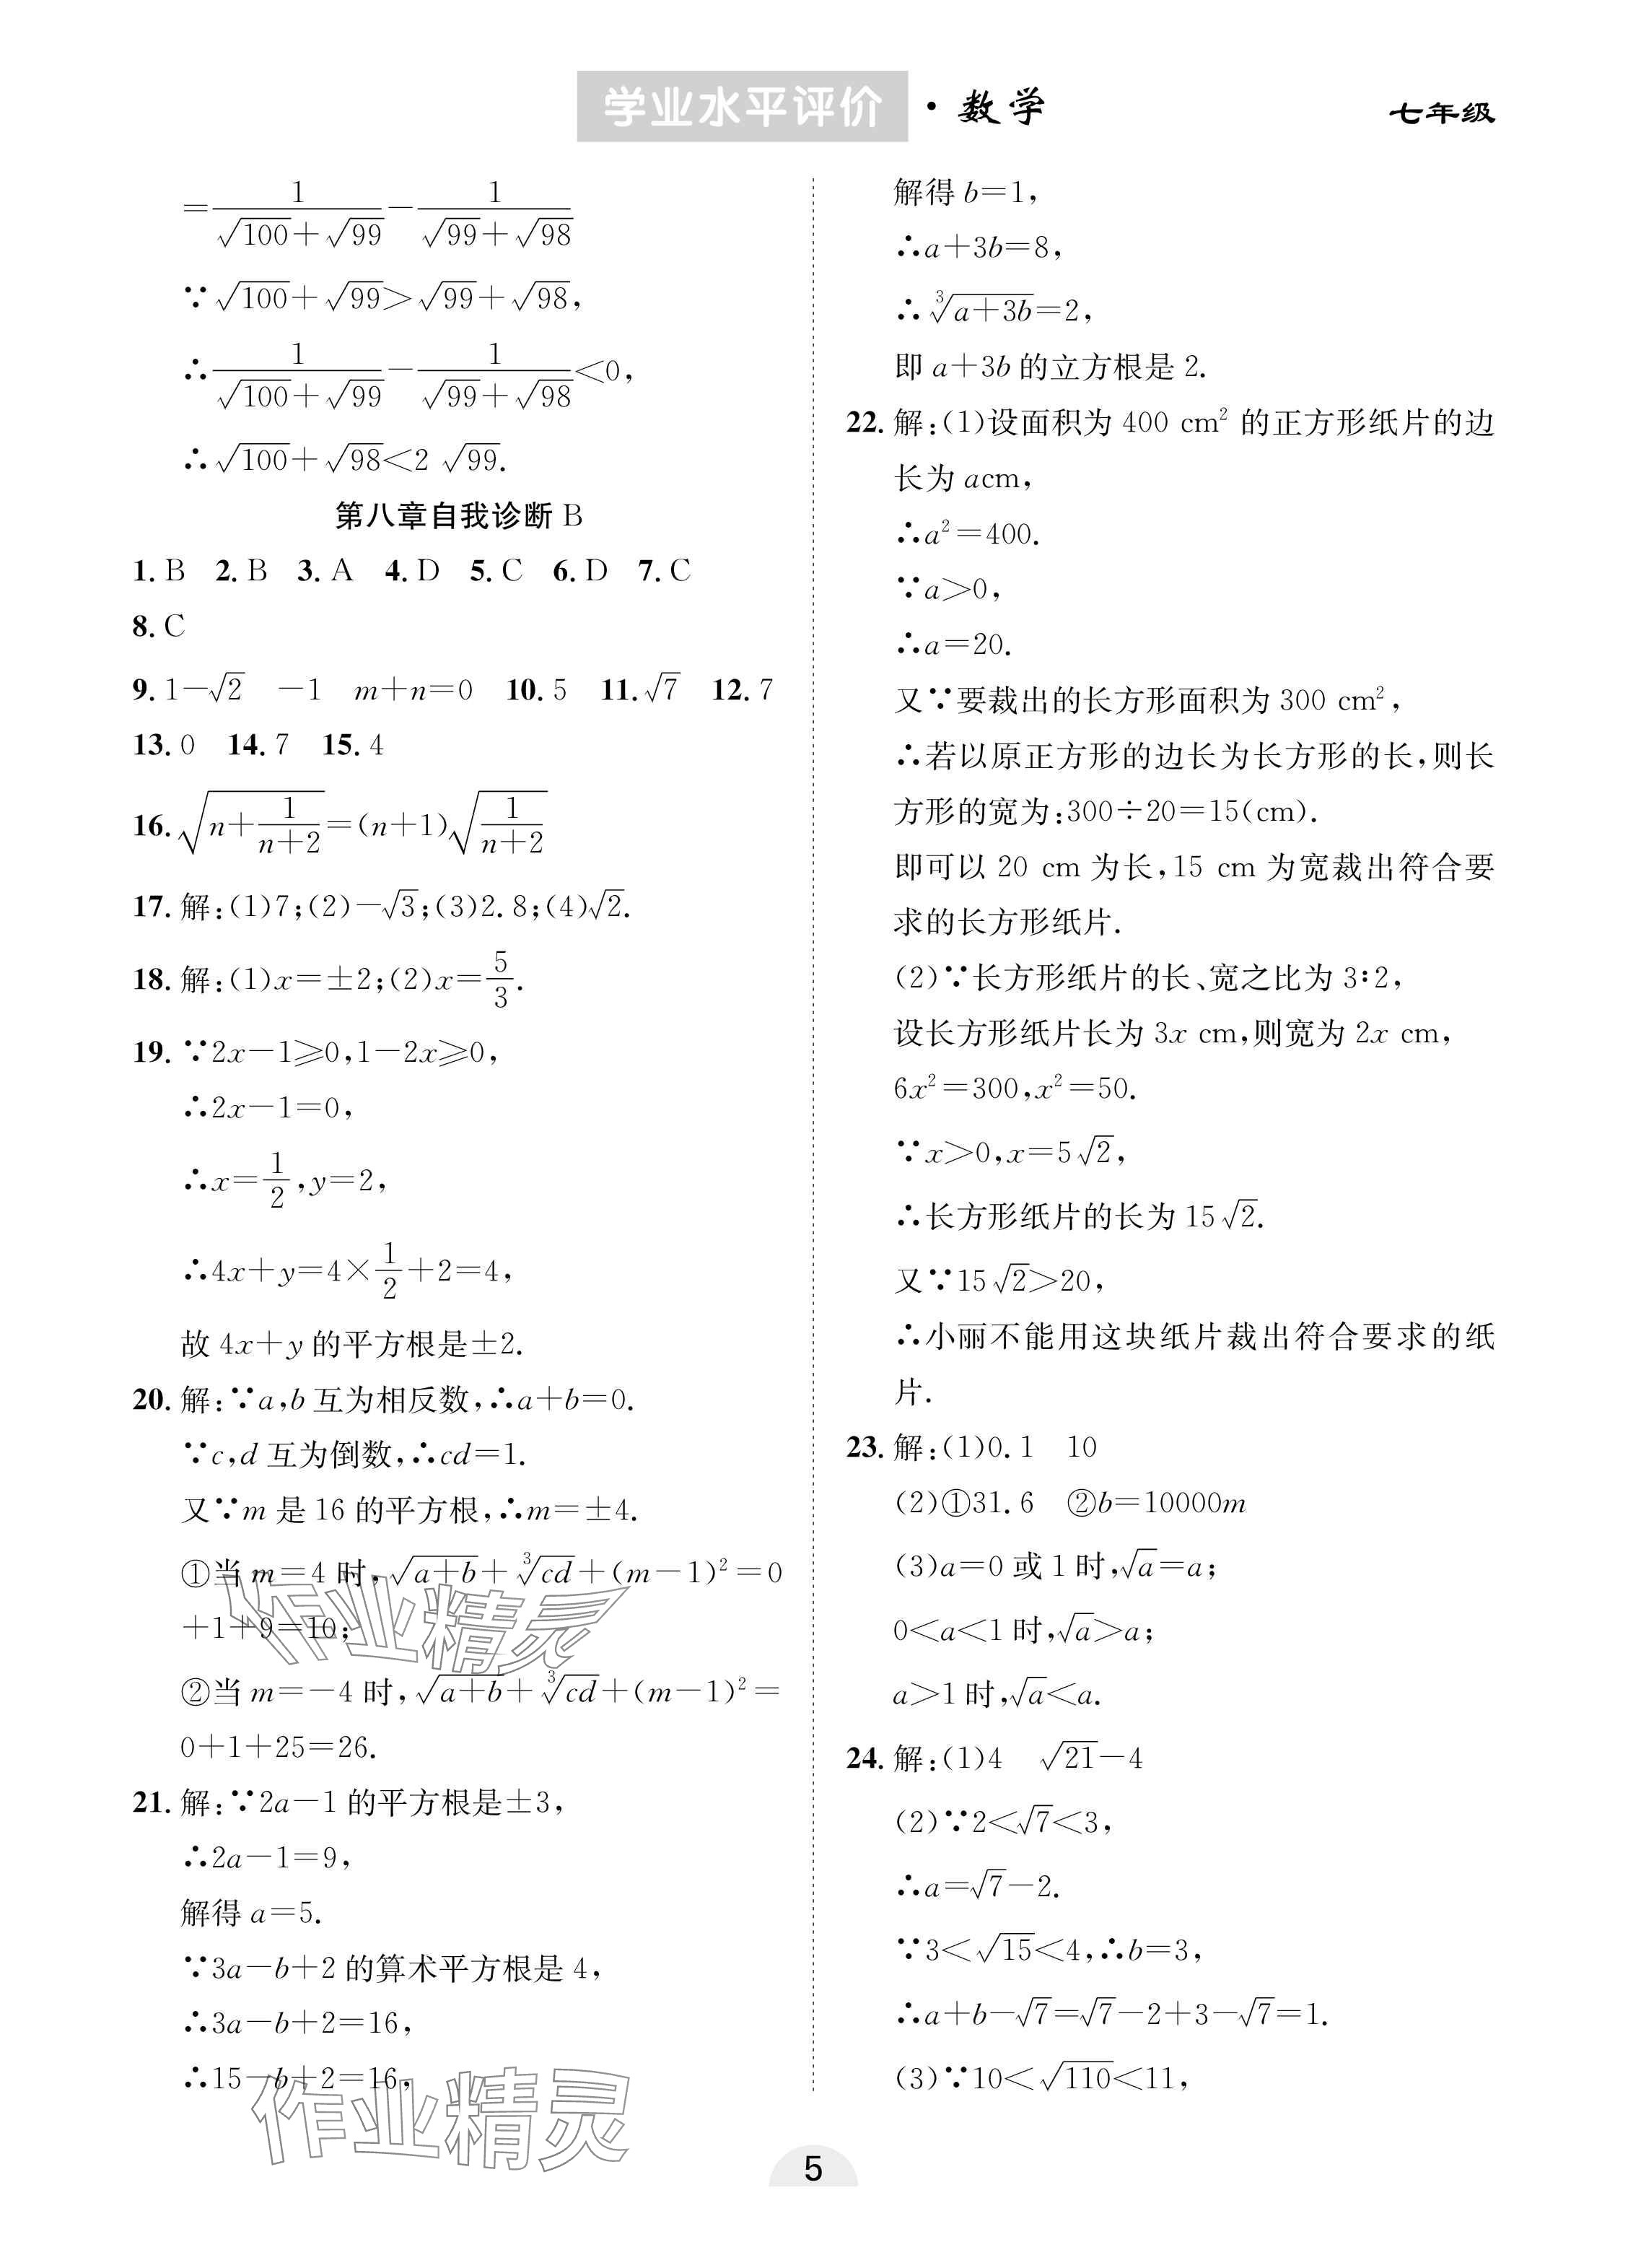 学业水平评价·数学
七年级
=1/(√100+√99)-1/(√99+√98)
∵√100+√99>√99+√98,
∴1/(√100+√99)-1/(√99+√98)<0,
∴√100+√98<2 √99.
第八章自我诊断 B
1. B 2. B 3. A 4. D 5. C 6. D 7. C
8. C
9. 1-√2 -1 m+n=0 10. 5 11. √7 12. 7
13. 0 14. 7 15. 4
16. √(n+1/(n+2))=(n+1)√(1/(n+2))
17. 解:(1)7;(2)-√3;(3)2.8;(4)√2.
18. 解:(1)x=±2;(2)x=5/3.
19. ∵2x-1≥0,1-2x≥0,
∴2x-1=0,
∴x=1/2,y=2,
∴4x+y=4×1/2+2=4,
故 4x+y 的平方根是±2.
20. 解:∵a,b 互为相反数,∴a+b=0.
∵c,d 互为倒数,∴cd=1.
又∵m 是 16 的平方根,∴m=±4.
①当 m=4 时,√(a+b)+∛(cd)+(m-1)²=0
+1+9=10;
②当 m=-4 时,√(a+b)+∛(cd)+(m-1)²=
0+1+25=26.
21. 解:∵2a-1 的平方根是±3,
∴2a-1=9,
解得 a=5.
∵3a-b+2 的算术平方根是 4,
∴3a-b+2=16,
∴15-b+2=16,
解得 b=1,
∴a+3b=8,
∴∛(a+3b)=2,
即 a+3b 的立方根是 2.
22. 解:(1)设面积为 400 cm² 的正方形纸片的边
长为 acm,
∴a²=400.
∵a>0,
∴a=20.
又∵要裁出的长方形面积为 300 cm²,
∴若以原正方形的边长为长方形的长,则长
方形的宽为:300÷20=15(cm).
即可以 20 cm 为长,15 cm 为宽裁出符合要
求的长方形纸片.
(2)∵长方形纸片的长、宽之比为 3∶2,
设长方形纸片长为 3x cm,则宽为 2x cm,
6x²=300,x²=50.
∵x>0,x=5√2,
∴长方形纸片的长为 15√2.
又∵15√2>20,
∴小丽不能用这块纸片裁出符合要求的纸
片.
23. 解:(1)0.1 10
(2)①31.6 ②b=10000m
(3)a=0 或 1 时,√a=a;
0<a<1 时,√a>a;
a>1 时,√a<a.
24. 解:(1)4 √21-4
(2)∵2<√7<3,
∴a=√7-2.
∵3<√15<4,∴b=3,
∴a+b-√7=√7-2+3-√7=1.
(3)∵10<√110<11,
作业精灵
作业精灵
5